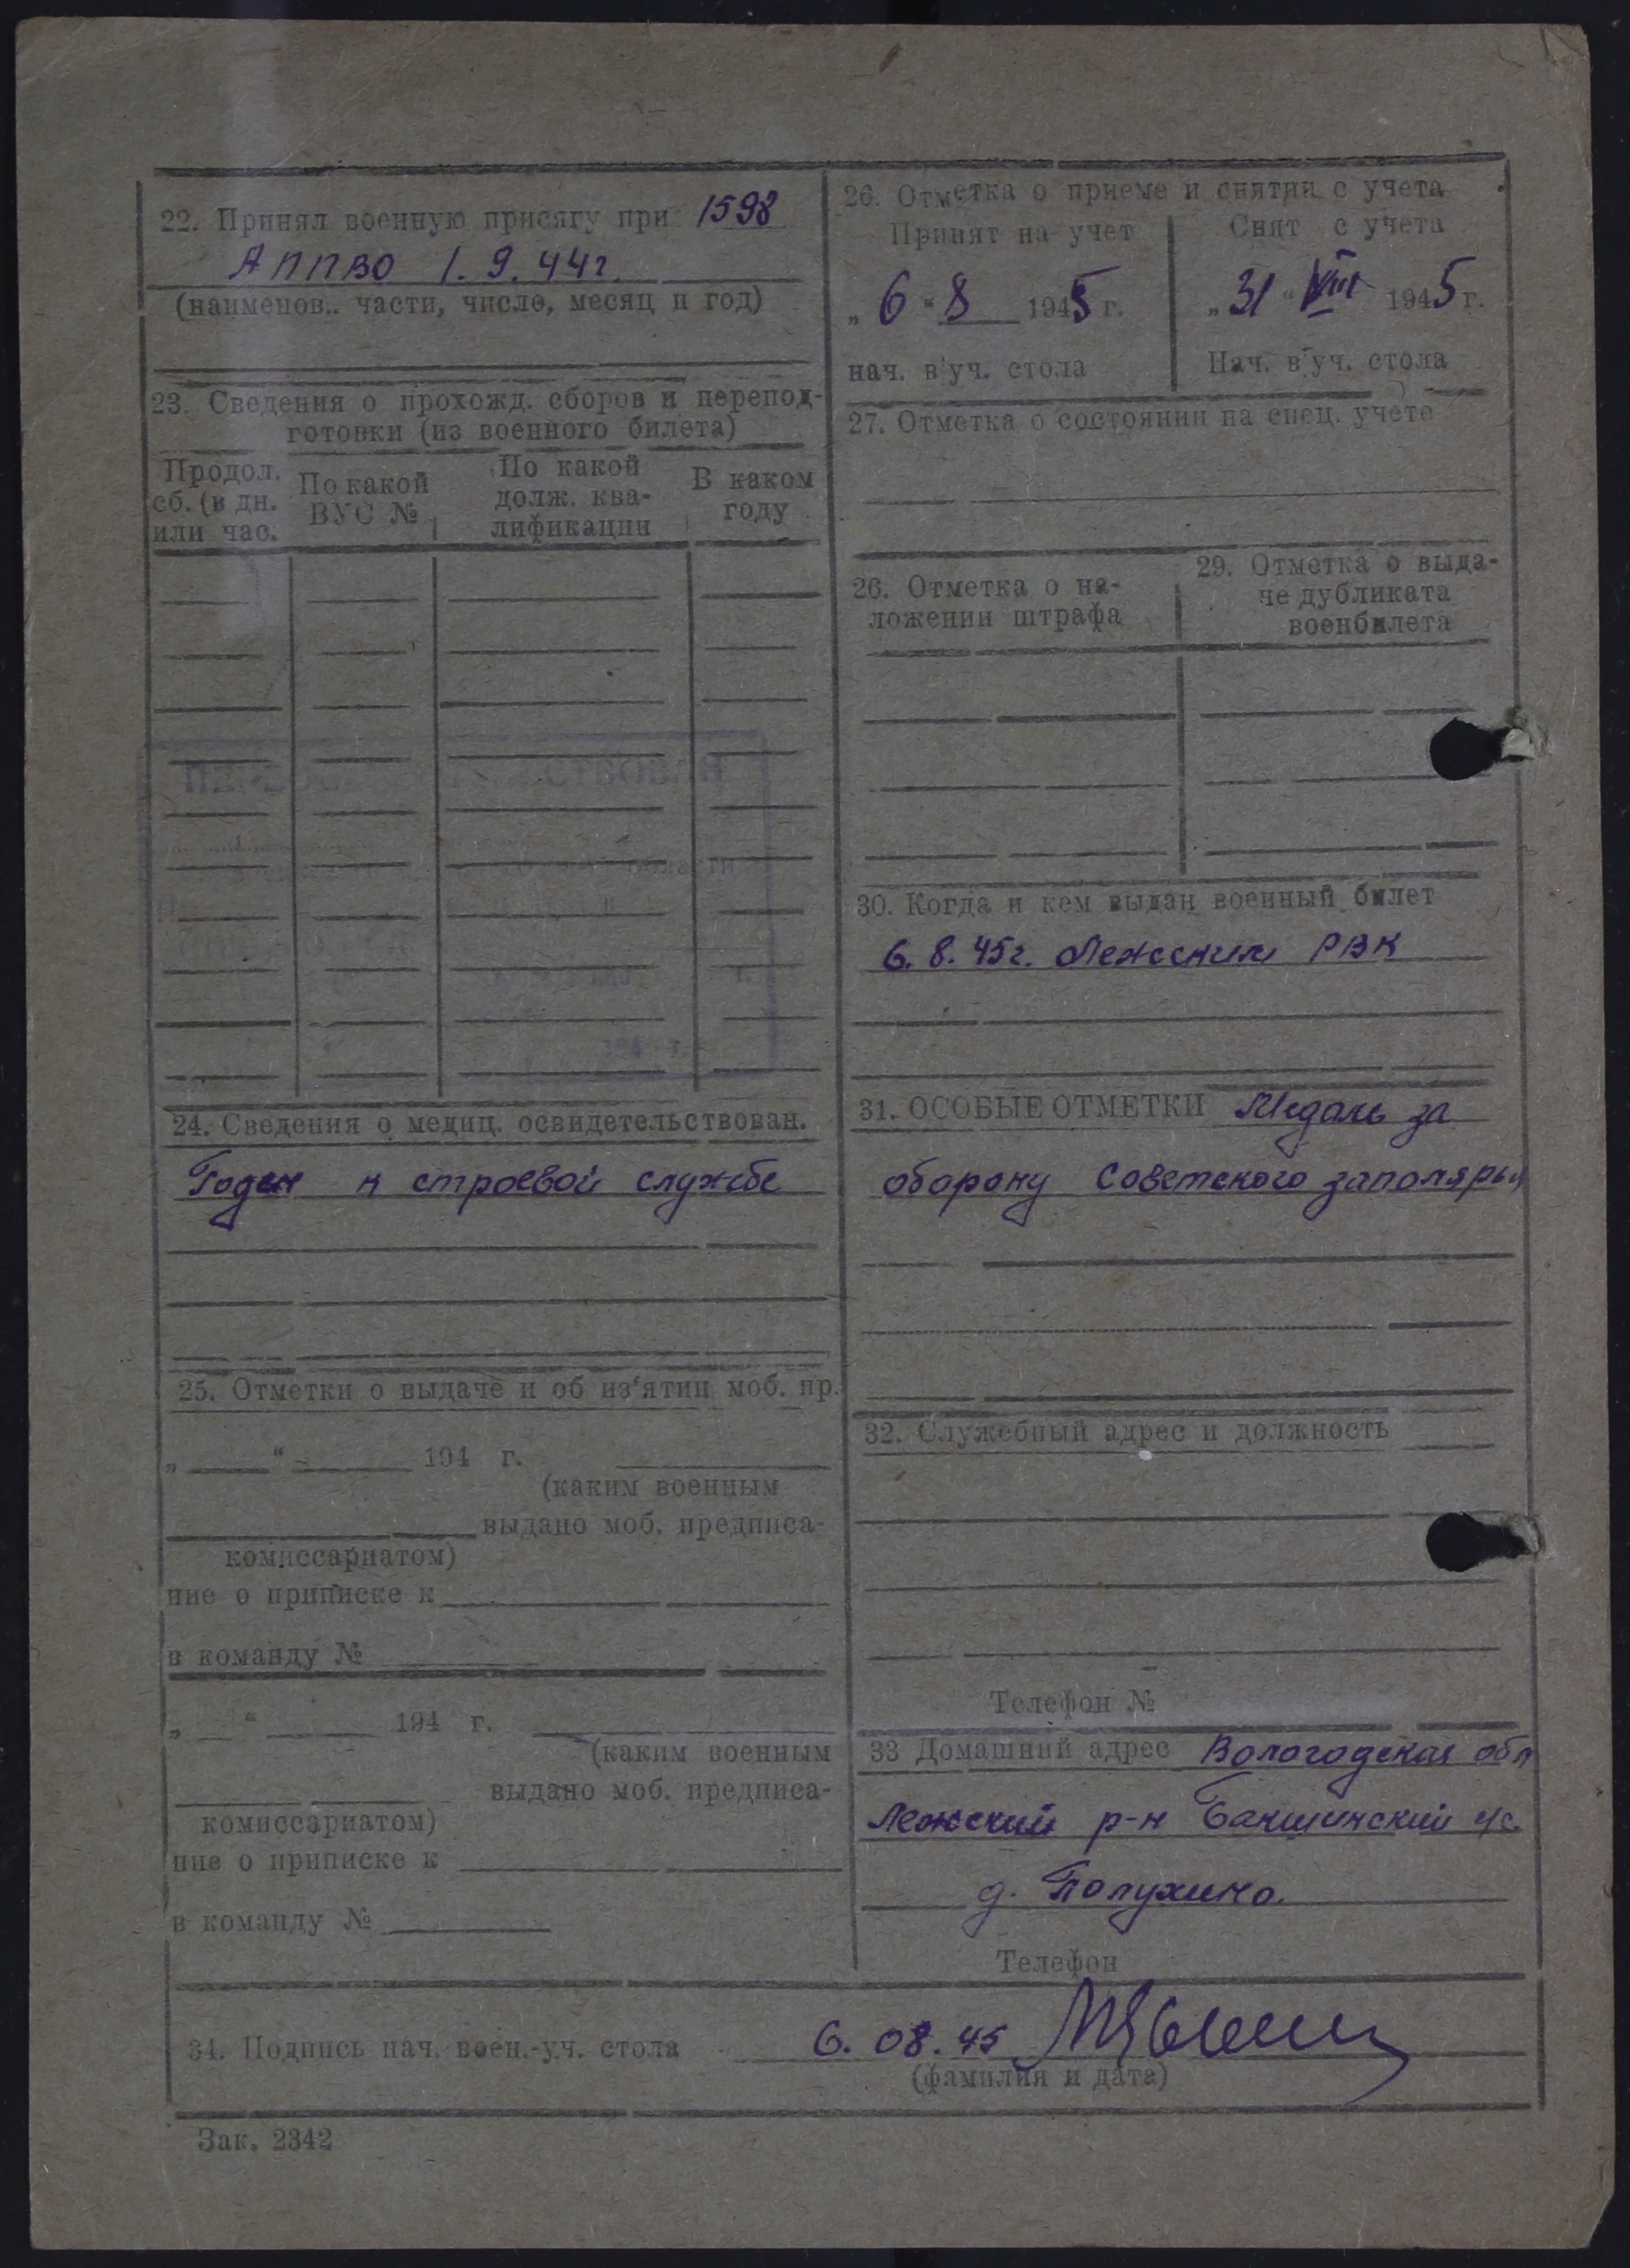 22. Принял военную присягу при 1598
АППВО 1.9.44г.
(наименов.. части, число, месяц и год)
23. Сведения о прохожд. сборов и перепод-
готовки (из военного билета)
Продол. сб. (в дн. или час.
По какой ВУС №
По какой долж. ква-
лификации
В каком году
24. Сведения о медиц. освидетельствован.
Годен к строевой службе
25. Отметки о выдаче и об из‘ятии моб. пр.
„ “ 194 г.
(каким военным
выдано моб. предписа-
комиссариатом)
ние о приписке к
в команду №
„ “ 194 г.
(каким военным
выдано моб. предписа-
комиссариатом)
ние о приписке к
в команду №
26. Отметка о приеме и снятии с учета
Принят на учет
„ 6 “ 8 1945 г.
нач. в уч. стола
Снят с учета
„ 31 “ VIII 1945 г.
Нач. в уч. стола
27. Отметка о состоянии на спец. учете
26. Отметка о на-
ложении штрафа
29. Отметка о выда-
че дубликата
военбилета
30. Когда и кем выдан военный билет
6.8.45г. Лежским РВК
31. ОСОБЫЕ ОТМЕТКИ Медаль за
оборону Советского заполярья
32. Служебный адрес и должность
Телефон №
33 Домашний адрес Вологодская обл
Лежский р-н Бакшинский с/с.
д. Полухино.
Телефон
34. Подпись нач. воен.-уч. стола 6.08.45
(фамилия и дата)
Зак. 2342